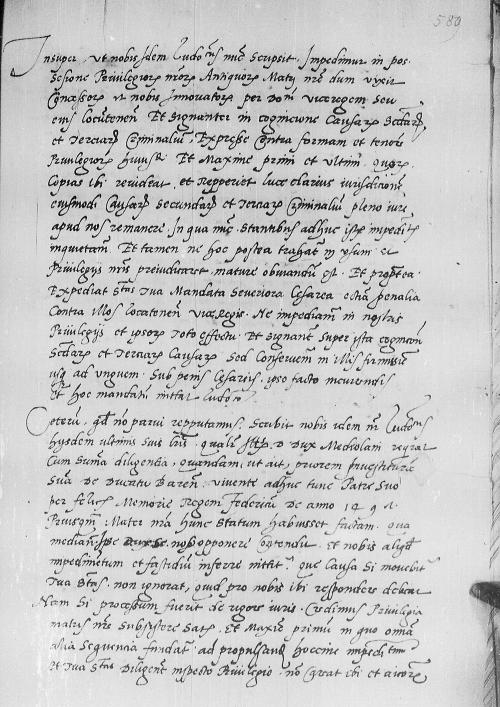 580
Insuper, ut nobis Idem Ludo.cus mic. Scripsit. Impedimur in pos
sesione Privilegior. nror. Antiquor. Maty. nre dum vixit
Concessor. et nobis Innovator. per Dom. viceregem seu
eius locutenen. Et Signanter in cognicione Causar. Secdar.
et Terciar. Criminaliu, Expresse Contra formam et tenore
Privilegior. huius. Et Maxime primi et ultimi. quor.
Copias ibi revideat. et Repperiet luce clarius iurisdicione
eiusmodi Causar. Secundar. et Terciar. Criminaliu pleno iure
apud nos remanere. In qua mic. Stantibus adhuc istis impeditis
inquietam. Et tamen ne hoc postea trahat in usum et
Privilegiis nris preiudicaret. mature obviandu est. Et propterea
Expediat Stas Tua Mandata Severiora Cesarea etia penalia
Contra Illos Locatenen. viceRegis. Ne impediam. in nostris
Privilegiis et ipsor. toto effectu. Et signant. super ista cognicion
Secdar. et Terciar. Causar. Sed Conservem. in illis firmissime
usq. ad unguem. Sub penis Cesareis. ipso facto incurendis
et hoc mandatu mittat Ludo.co
Ceteru, qd no parvi repputamus, Scribit nobis idem mr Ludo.cus
hysdem ultimis suis lris. qualr D Dux Mediolani requirat
Cum Suma diligentia, quandam, ut ait, priorem Investitura
Sua de Ducatu Baren. vivente adhuc tunc Patre Suo
per felicis Memorie Regem Federicu De anno 149
Priusqm Mater nra hunc Statum habuisset factam. qua
mediante nobis opponere contendit. et nobis aliqd
impedimentum et fastidiu inferre nititr. que Causa Si movebitr
Tua Stas. non ignorat, quid pro nobis ibi respondere debeat
Nam Si processum fuerit de rigore iuris. Credimus Privilegia
matris nre Subsistere Satis. Et Maxie primu in quo omia
alia Sequentia fundatr. ad propulsand. hoccine impedimtum
et Tua Stas Diligent. inspecto Privilegio. no ibi et